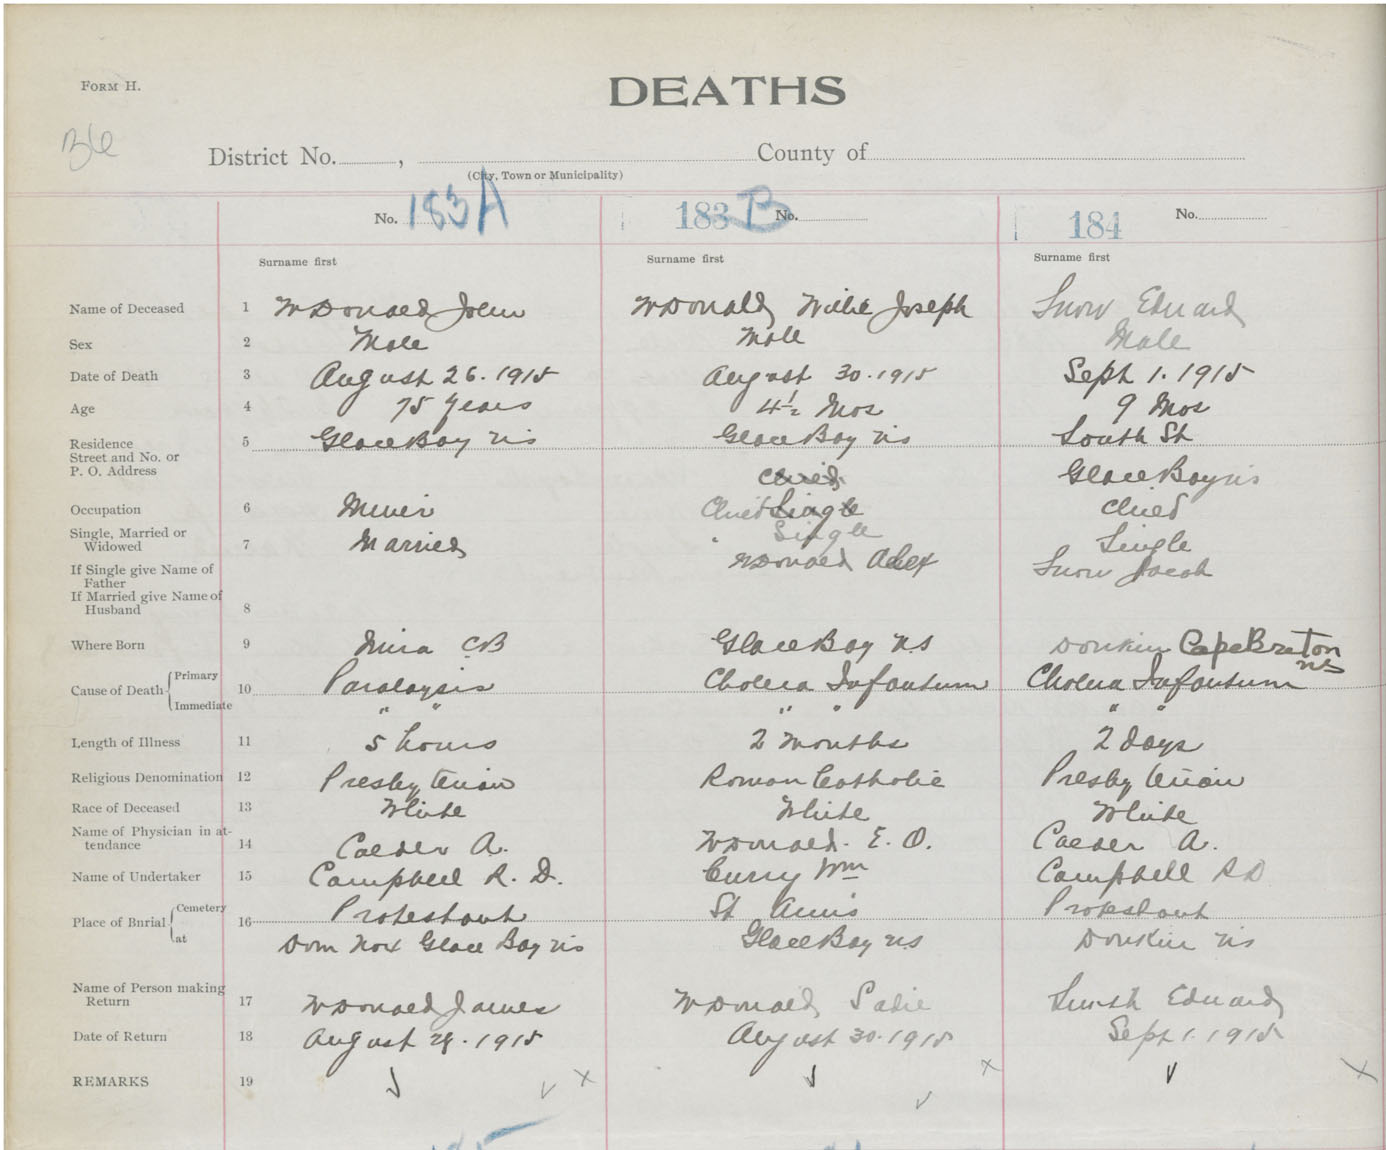 FORM H.
DEATHS
36
District No. , County of
(City, Town or Municipality)
No. 183A 183B No. 184 No.
Surname first Surname first Surname first
Name of Deceased 1 McDonald John McDonald Willie Joseph Snow Edward
Sex 2 Male Male Male
Date of Death 3 August 26. 1915 August 30. 1915 Sept 1. 1915
Age 4 75 years 4½ Mos 9 Mos
Residence 5 Glace Bay NS Glace Bay NS South St
Street and No. or
P. O. Address child Glace Bay NS
Occupation 6 Miner Child Single child
Single, Married or
Widowed 7 Married " Single Single
If Single give Name of McDonald Alex Snow Jacob
Father
If Married give Name of
Husband 8
Where Born 9 Mira CB Glace Bay N.S Donkin Cape Breton
NS
Cause of Death Primary 10 Paralaysis Cholera Infantum Cholera Infantum
Immediate " " " " " "
Length of Illness 11 5 hours 2 months 2 days
Religious Denomination 12 Presbyterian Roman Catholic Presbyterian
Race of Deceased 13 White White White
Name of Physician in at-
tendance 14 Calder A. McDonald. E. O. Calder A.
Name of Undertaker 15 Campbell R. D. Curry Wm Campbell R D
Place of Burial Cemetery 16 Protestant St Anns Protestant
at Dom No x Glace Bay NS Glace Bay N.S Donkin NS
Name of Person making
Return 17 McDonald James McDonald Sadie Edward
Date of Return 18 August 29. 1915 August 30. 1915 Sept 1. 1915
REMARKS 19